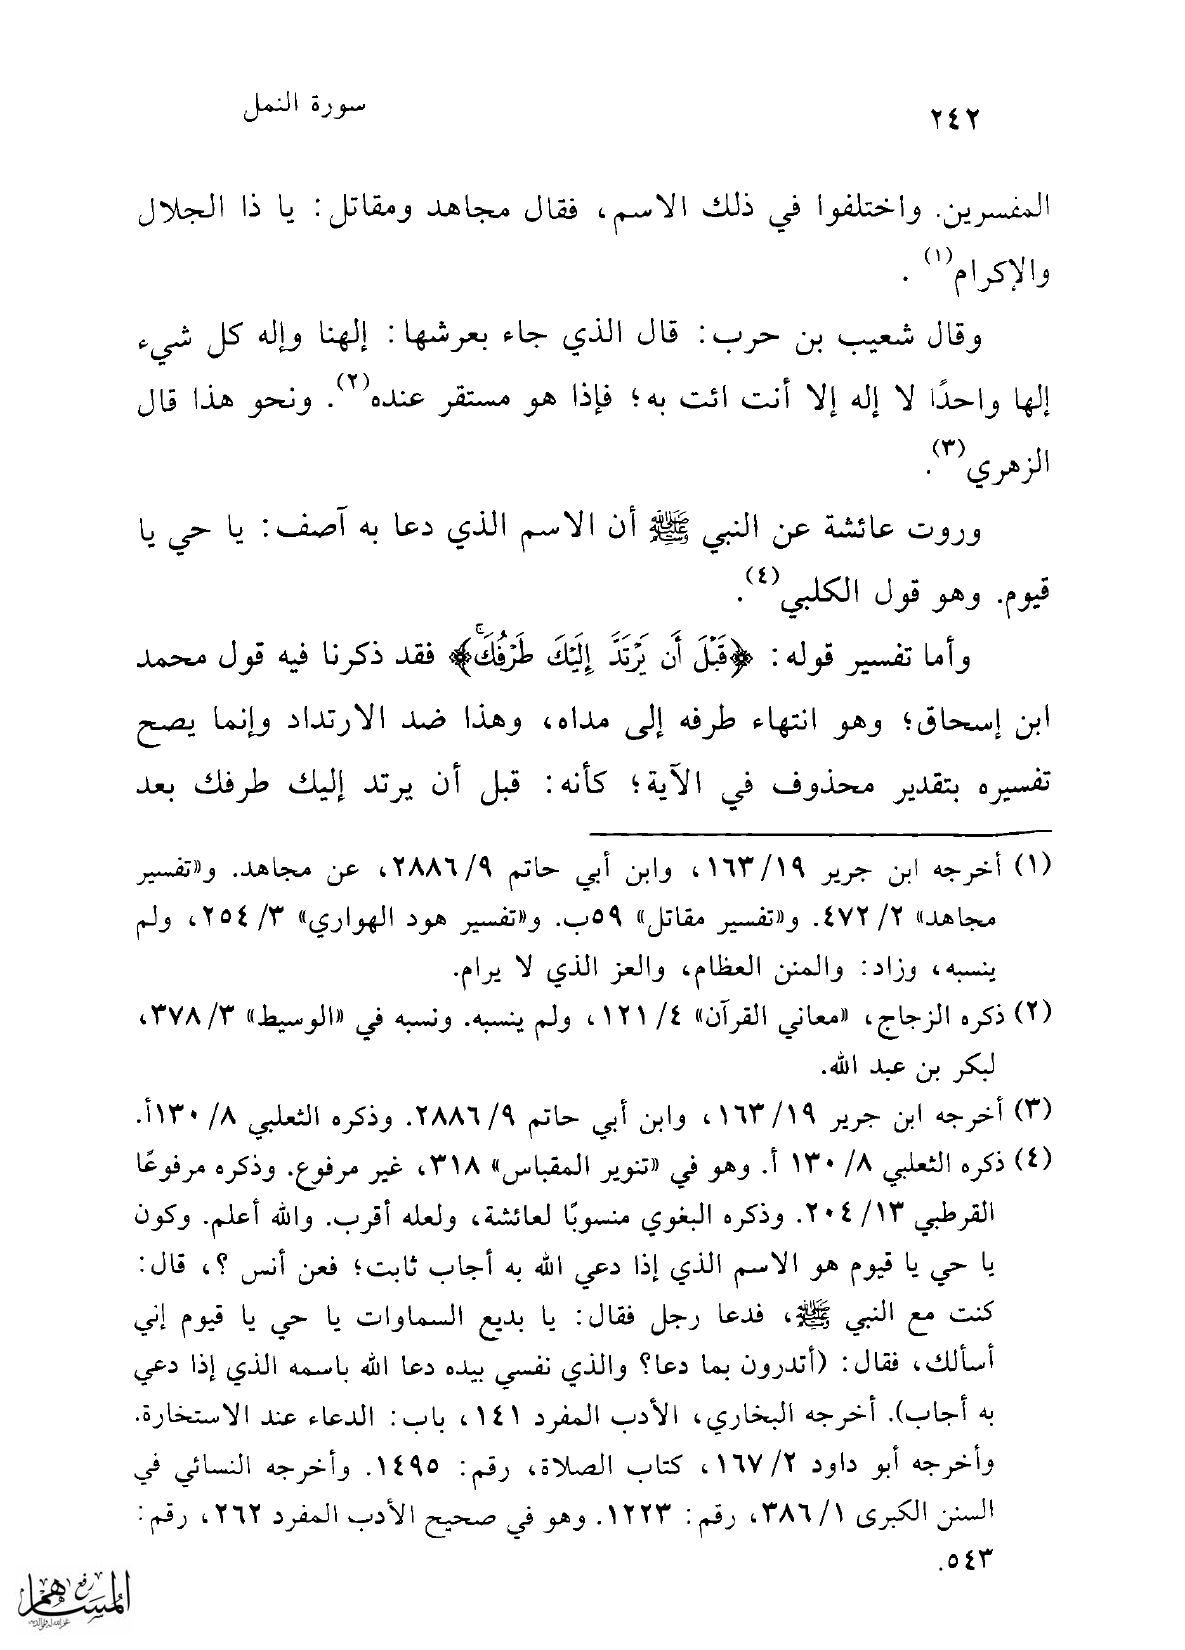 ٢٤٢
سورة النمل
المفسرين. واختلفوا في ذلك الاسم، فقال مجاهد ومقاتل: يا ذا الجلال
والإكرام(١) .
وقال شعيب بن حرب: قال الذي جاء بعرشها: إلهنا وإله كل شيء
إلها واحدًا لا إله إلا أنت ائت به؛ فإذا هو مستقر عنده(٢). ونحو هذا قال
الزهري(٣).
وروت عائشة عن النبي ﷺ أن الاسم الذي دعا به آصف: يا حي يا
قيوم. وهو قول الكلبي(٤).
وأما تفسير قوله: ﴿قَبْلَ أَن يَرْتَدَّ إِلَيْكَ طَرْفُكَۚ﴾ فقد ذكرنا فيه قول محمد
ابن إسحاق؛ وهو انتهاء طرفه إلى مداه، وهذا ضد الارتداد وإنما يصح
تفسيره بتقدير محذوف في الآية؛ كأنه: قبل أن يرتد إليك طرفك بعد
(١) أخرجه ابن جرير ١٩/ ١٦٣، وابن أبي حاتم ٩/ ٢٨٨٦، عن مجاهد. و«تفسير
مجاهد» ٢/ ٤٧٢. و«تفسير مقاتل» ٥٩ب. و«تفسير هود الهواري» ٣/ ٢٥٤، ولم
ينسبه، وزاد: والمنن العظام، والعز الذي لا يرام.
(٢) ذكره الزجاج، «معاني القرآن» ٤/ ١٢١، ولم ينسبه. ونسبه في «الوسيط» ٣/ ٣٧٨،
لبكر بن عبد الله.
(٣) أخرجه ابن جرير ١٩/ ١٦٣، وابن أبي حاتم ٩/ ٢٨٨٦. وذكره الثعلبي ٨/ ١٣٠أ.
(٤) ذكره الثعلبي ٨/ ١٣٠ أ. وهو في «تنوير المقباس» ٣١٨، غير مرفوع. وذكره مرفوعًا
القرطبي ١٣/ ٢٠٤. وذكره البغوي منسوبًا لعائشة، ولعله أقرب. والله أعلم. وكون
يا حي يا قيوم هو الاسم الذي إذا دعي الله به أجاب ثابت؛ فعن أنس ؟، قال:
كنت مع النبي ﷺ، فدعا رجل فقال: يا بديع السماوات يا حي يا قيوم إني
أسألك، فقال: (أتدرون بما دعا؟ والذي نفسي بيده دعا الله باسمه الذي إذا دعي
به أجاب). أخرجه البخاري، الأدب المفرد ١٤١، باب: الدعاء عند الاستخارة.
وأخرجه أبو داود ٢/ ١٦٧، كتاب الصلاة، رقم: ١٤٩٥. وأخرجه النسائي في
السنن الكبرى ١/ ٣٨٦، رقم: ١٢٢٣. وهو في صحيح الأدب المفرد ٢٦٢، رقم:
٥٤٣.